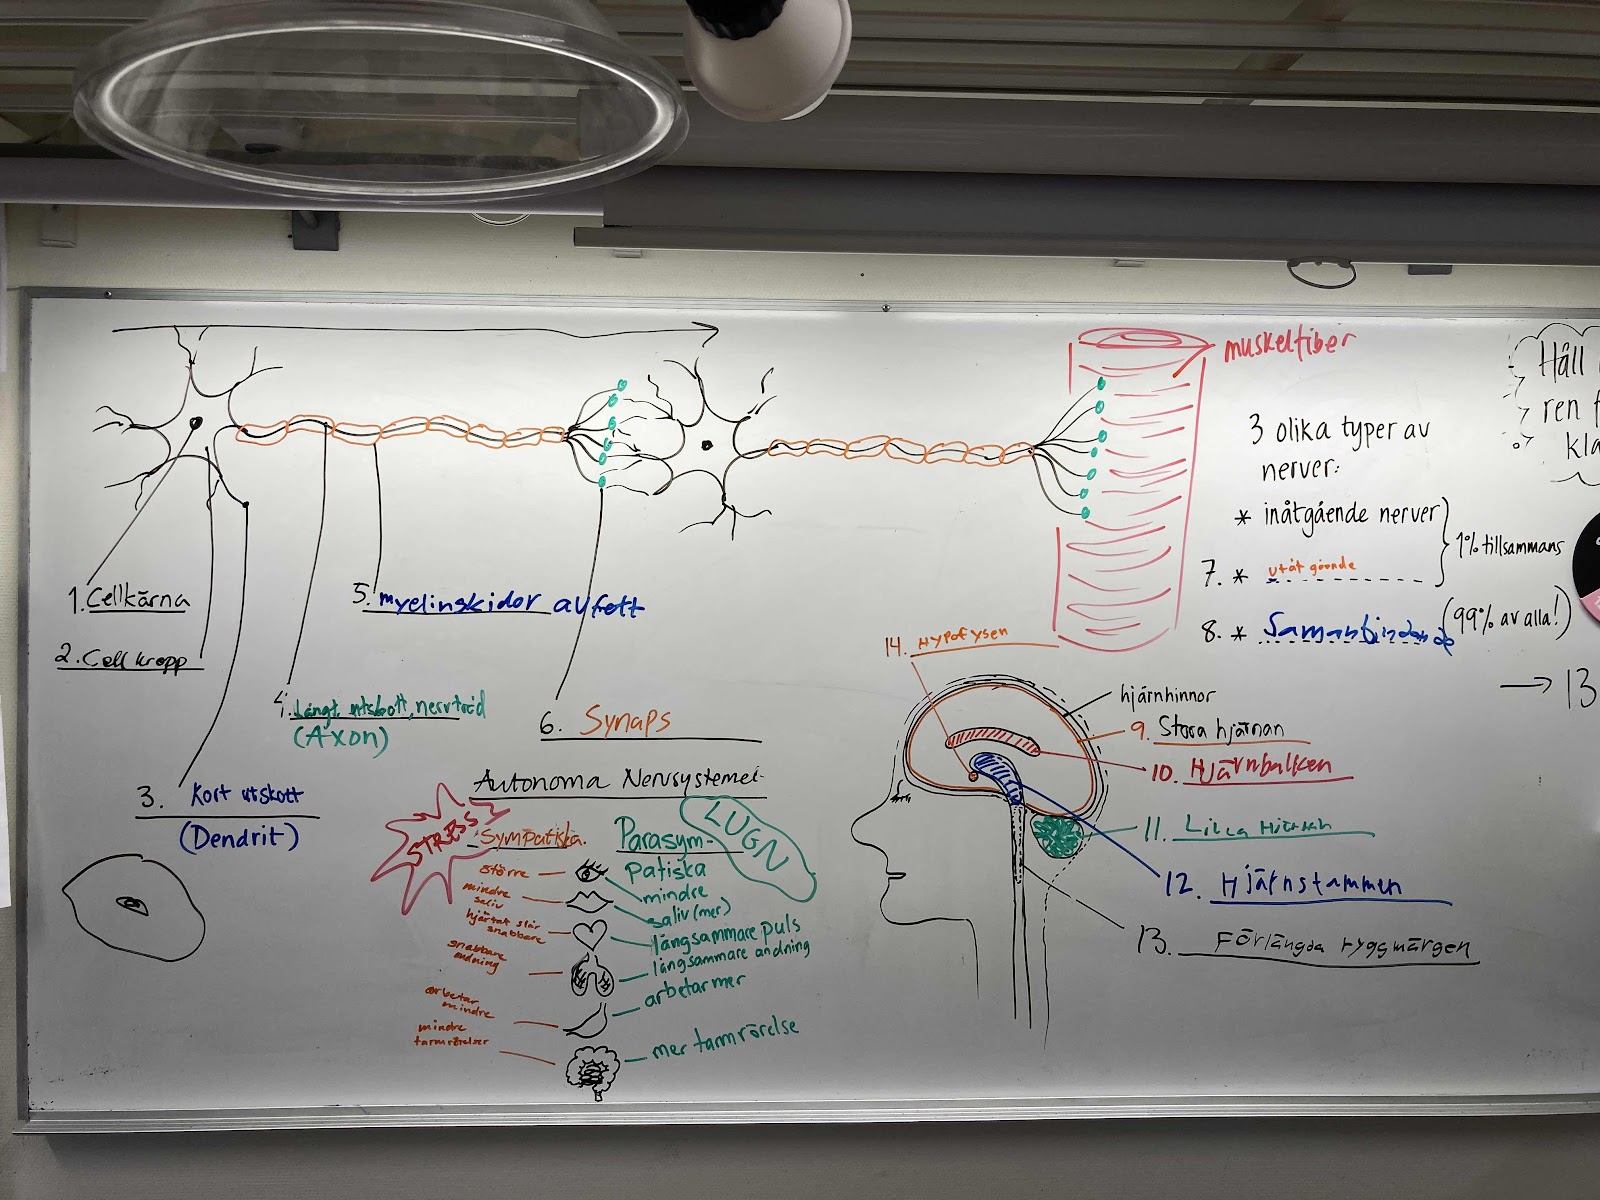 muskelfiber
Håll
ren f
kla
3 olika typer av
nerver:
* inåtgående nerver
1% tillsammans
7. * utåt gående
8. * Samanbindande
(99% av alla!)
→ 13
1. Cellkärna
2. Cell kropp
3. Kort utskott
(Dendrit)
4. Långt utskott, nervtråd
(Axon)
5. myelinskidor av fett
6. Synaps
Autonoma Nervsystemet
STRESS
Sympatiska.
större
mindre
saliv
hjärtat slår
snabbare
snabbare
andning
arbetar
mindre
mindre
tarmrörelser
LUGN
Parasym-
patiska
mindre
saliv (mer)
långsammare puls
långsammare andning
arbetar mer
mer tarmrörelse
14. Hypofysen
hjärnhinnor
9. Stora hjärnan
10. Hjärnbalken
11. Lilla
12. Hjärnstammen
13. Förlängda ryggmärgen